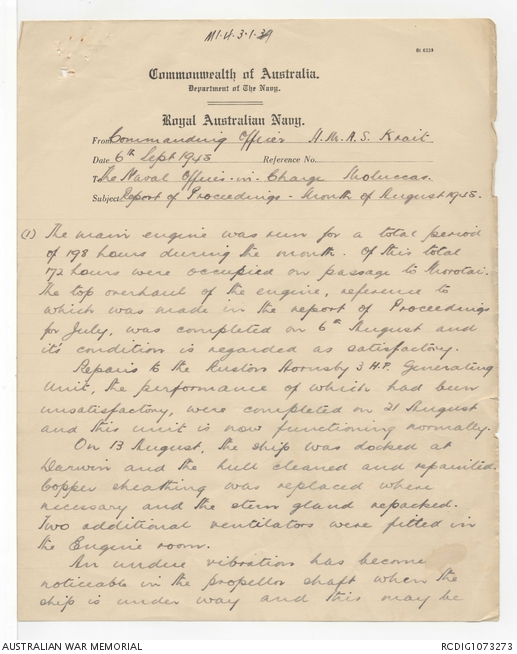 M1.4.3.1.39
Commonwealth of Australia.
Department of The Navy.
Royal Australian Navy.
From Commanding Officer H.M.A.S. Krait
Date 6th Sept 1945 Reference No.
To The Naval Officer-in-Charge Moluccas.
Subject Report of Proceedings - Month of August 1945.
(1) The main engine was run for a total period
of 198 hours during the month. Of this total
172 hours were occupied on passage to Morotai.
The top overhaul of the engine, reference to
which was made in the report of Proceedings
for July, was completed on 6th August and
its condition is regarded as satisfactory.
Repairs to the Ruston Hornsby 3 H.P. Generating
Unit, the performance of which had been
unsatisfactory, were completed on 21 August
and this unit is now functioning normally.
On 13 August, the ship was docked at
Darwin and the hull cleaned and repainted.
Copper sheathing was replaced where
necessary and the stern gland repacked.
Two additional ventilators were fitted in
the Engine room.
An undue vibration has become
noticeable in the propellor shaft when the
ship is under way and this may be
AUSTRALIAN WAR MEMORIAL
RCDIG1073273